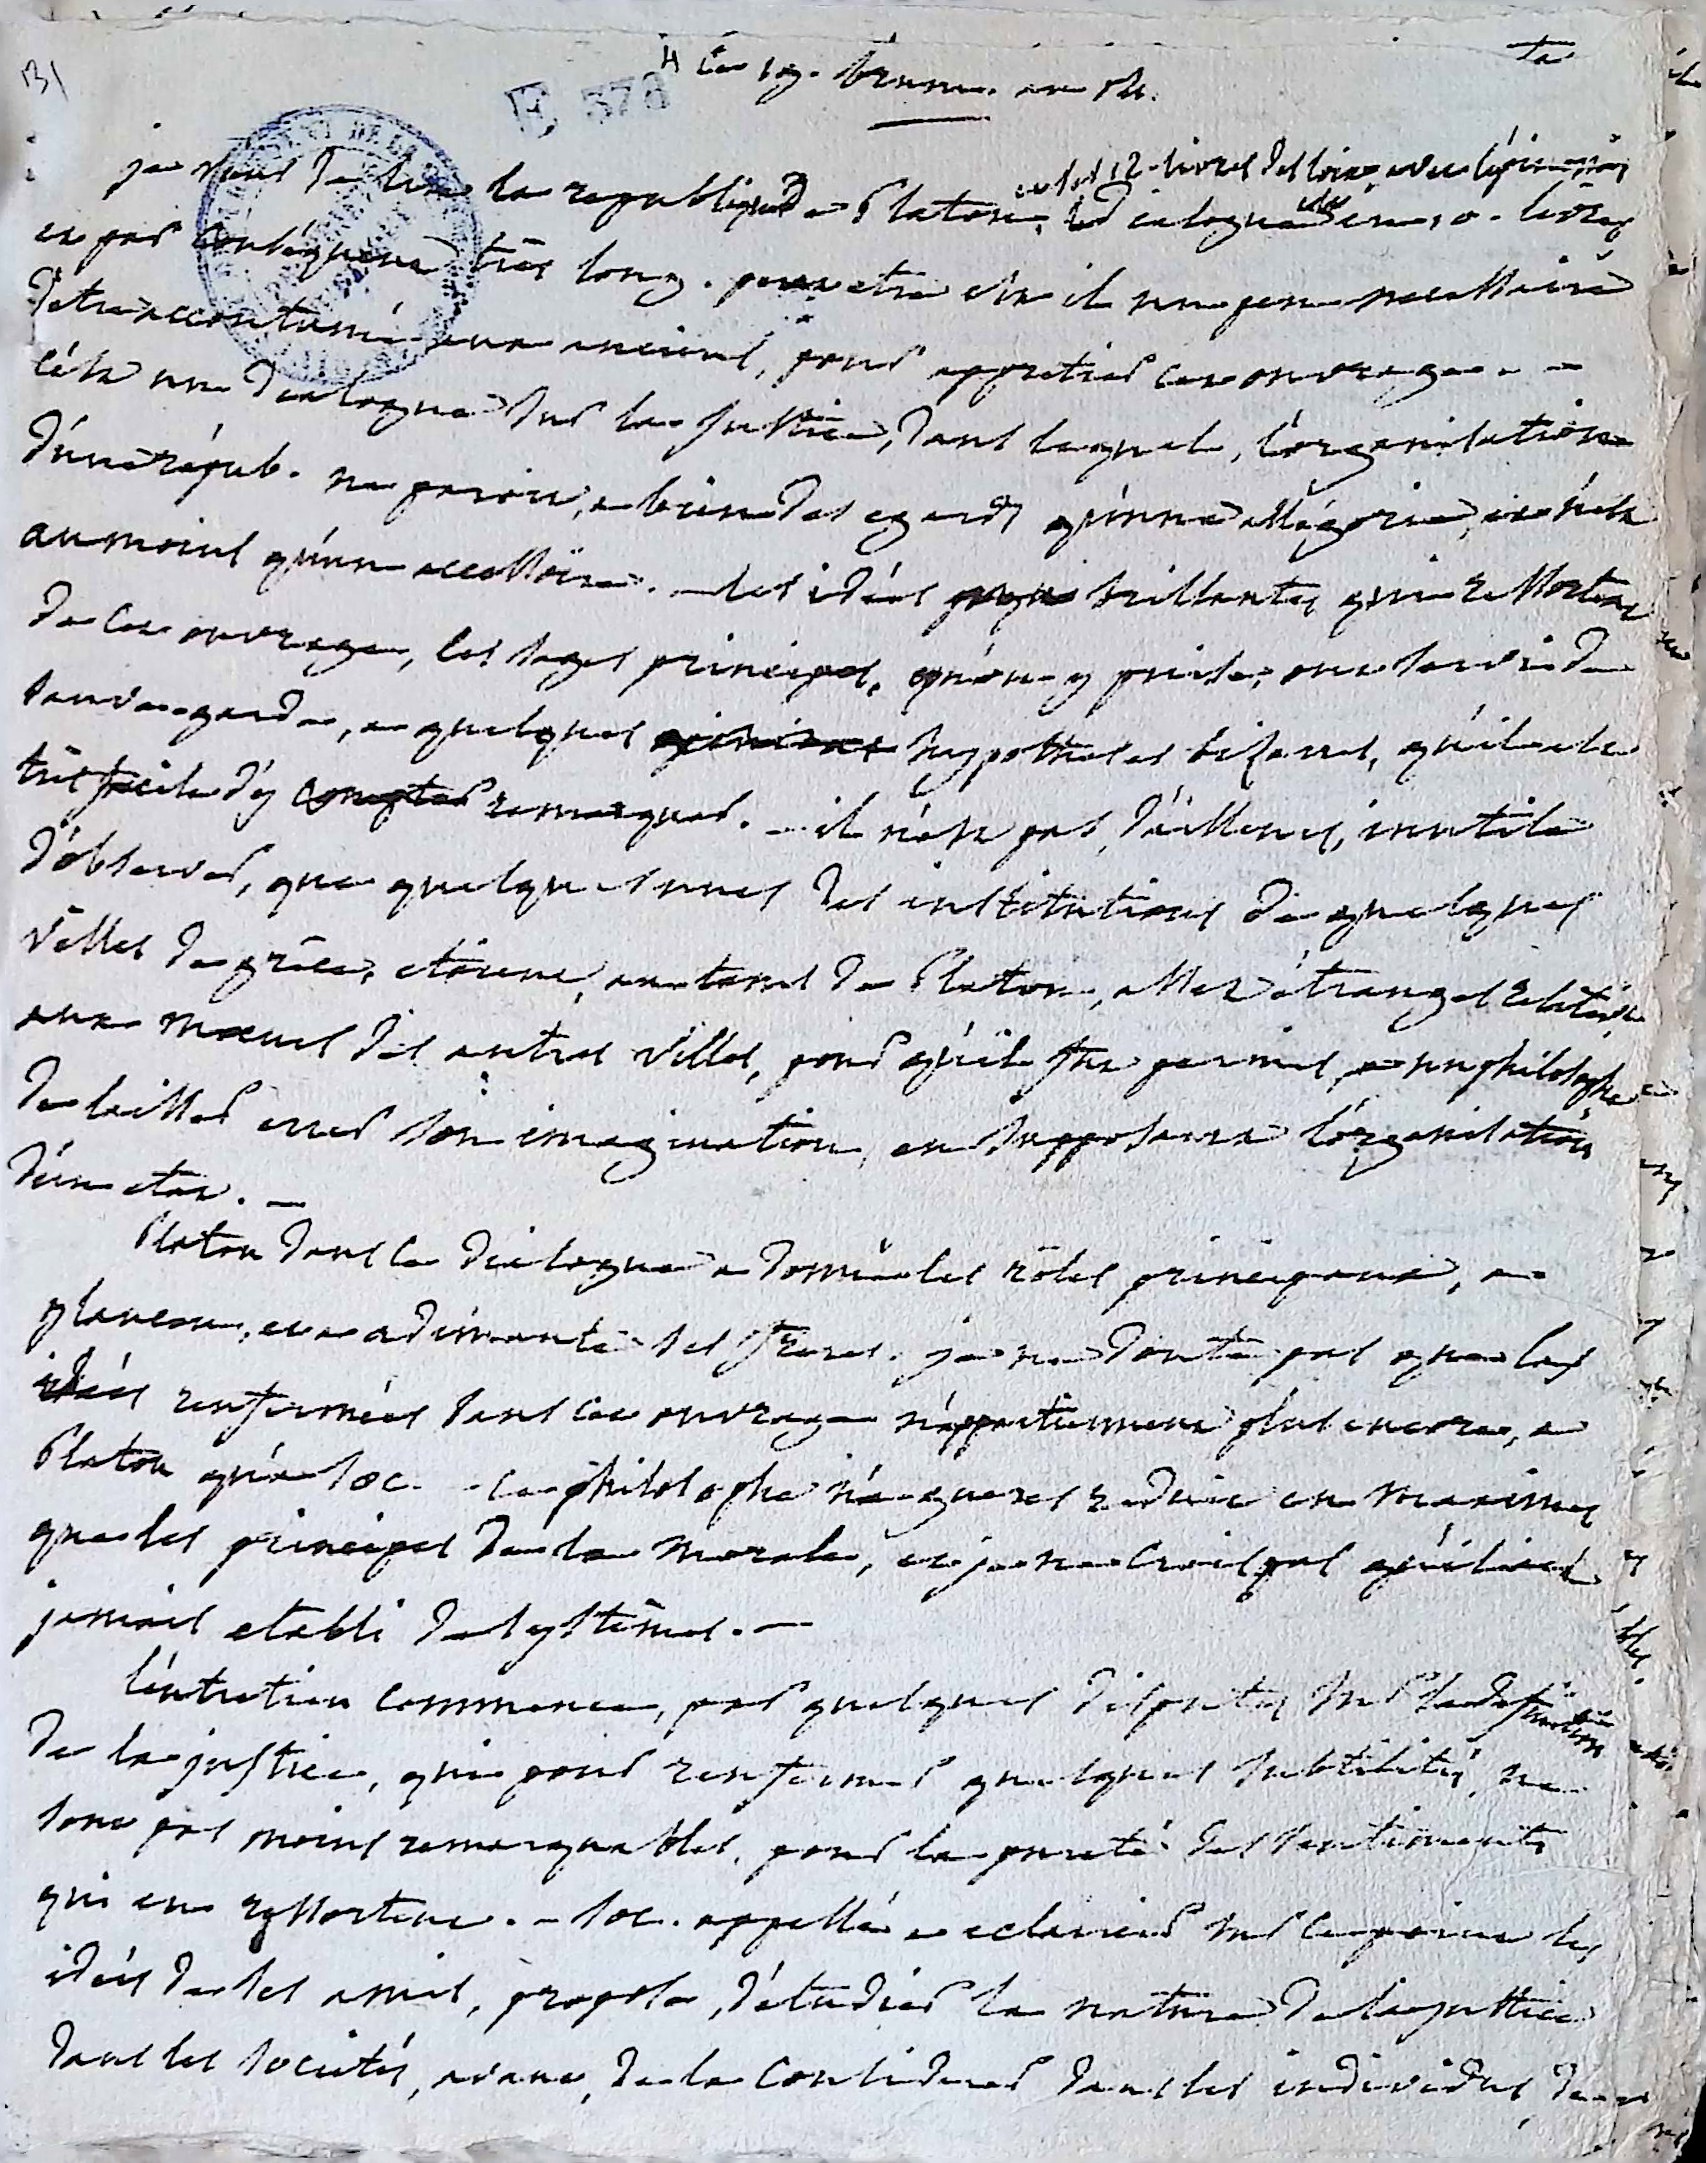 131
Ce 19. brum. an XII.
E 378
et les 12 livres des loix, avec l'épinomis
je viens de lire la republique de Platon, dialogue en 10. livres
et par conséquent très long. peut etre est il un peu necessaire
d'etre accoutumé aux anciens, pour apprecier cet ouvrage. —
c'est un dialogue sur la justice, dans lequel, l'organisation
d'une répub. ne paroit, a bien des egards qu'une allégorie, et n'est
au moins qu'un accessoire. — les idées brillantes qui ressortent
de cet ouvrage, les sages principes, qu'on y puise, ont servi de
sauve-garde, a quelques hypotheses bizarres, qu'il est
très facile d'y remarquer. — il n'est pas, d'ailleurs, inutile
d'observer, que quelques unes des institutions de quelques
villes de grèce, etoient, au tems de Platon, assez étranges relativt.
aux moeurs des autres villes, pour qu'il fut permis, a un philosophe
de laisser errer son imagination, en supposant l'organisation
d'un etat. —
Platon dans ce dialogue a donné les rôles principaux, a
glaucon, et a adimante ses freres. je ne doute pas que les
idées renfermées dans cet ouvrage n'appartiennent plus encore, a
Platon qu'a soc. — ce philosophe n'a gueres reduit en maximes
que les principes de la morale, et je ne crois pas qu'il ait
jamais etabli de systêmes. —
l'entretien commence, par quelques disputes sur la definition
de la justice, qui pour renfermer quelques subtilités, ne
sont pas moins remarquables, pour la pureté des sentiments
qui en ressortent. — soc. appellé a eclaircir sur ce point les
idées de ses amis, propose, d'étudier la nature de la justice
dans les sociétés, avant, de la considerer dans les individus, de